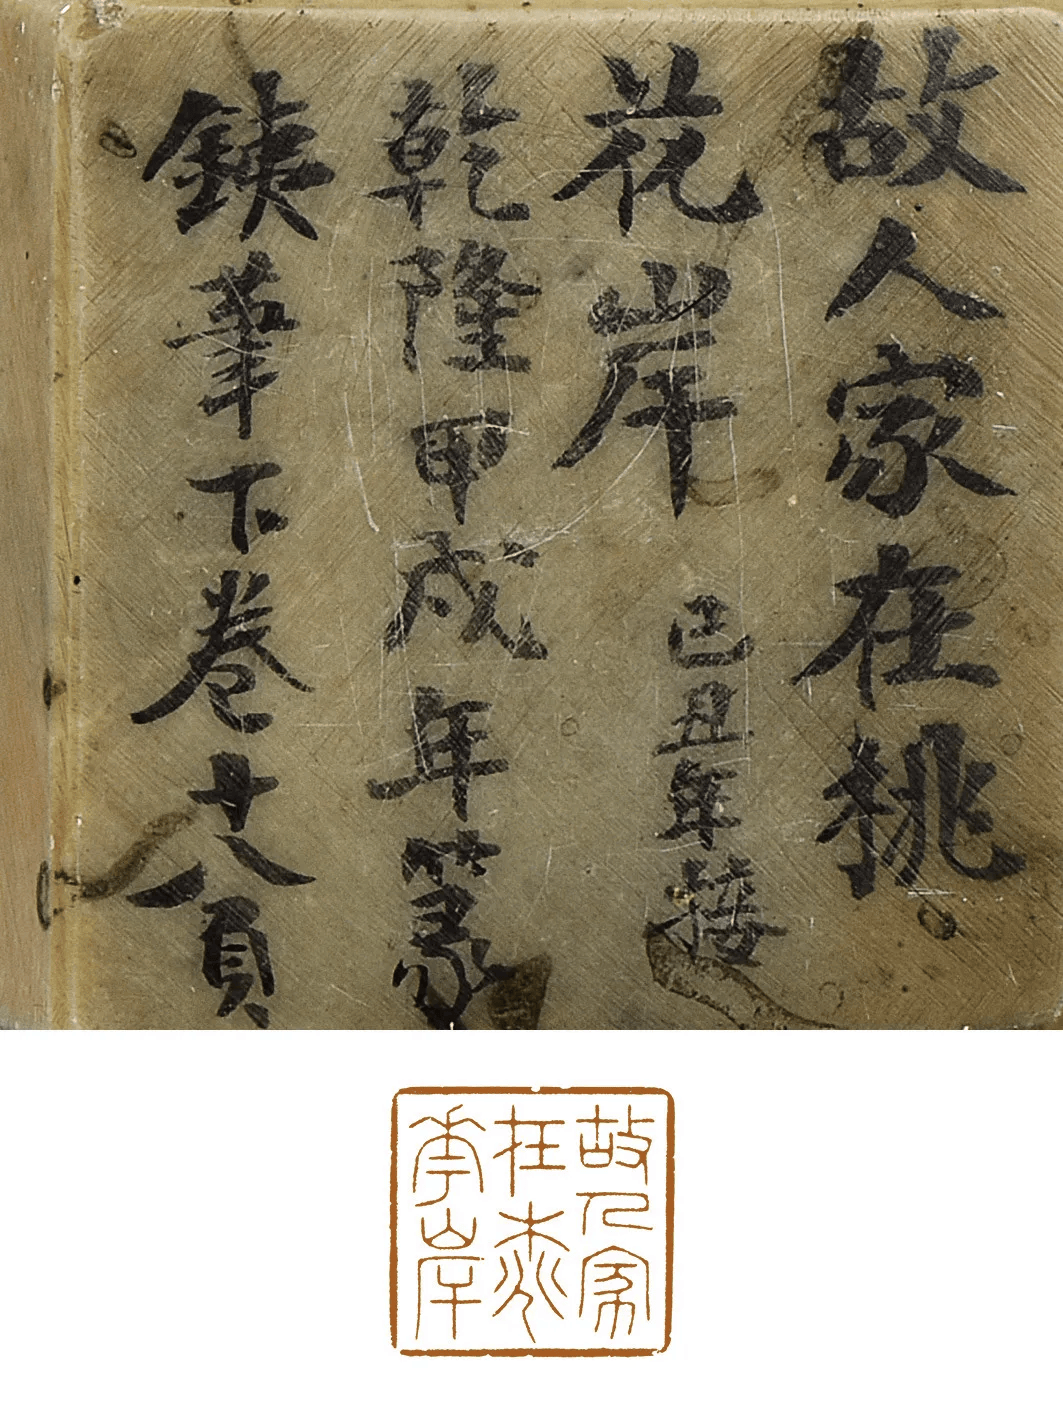 故人家在桃
花岸 己丑年接
乾隆甲戌年篆
銕筆下卷十八頁
故人家
在桃
花岸